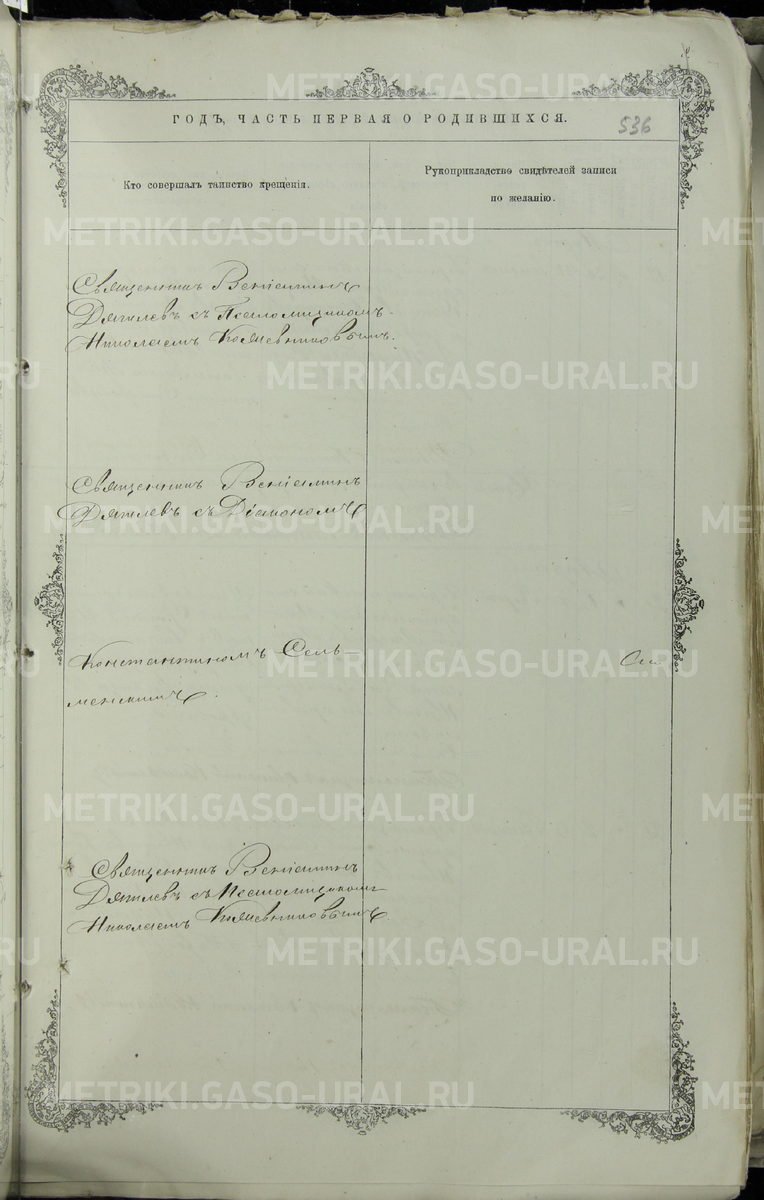 ГОДЪ, ЧАСТЬ ПЕРВАЯ О РОДИВШИХСЯ.
536
Кто совершалъ таинство крещенія.
Рукоприкладство свидѣтелей записи
по желанію.
Священникъ Веніаминъ
Дягилевъ съ Псаломщикомъ
Николаемъ
Священникъ Веніаминъ
Дягилевъ съ Діакономъ
Константиномъ Сель-
менскимъ.
Священникъ Веніаминъ
Дягилевъ съ Псаломщикомъ
Николаемъ
METRIKI.GASO-URAL.RU